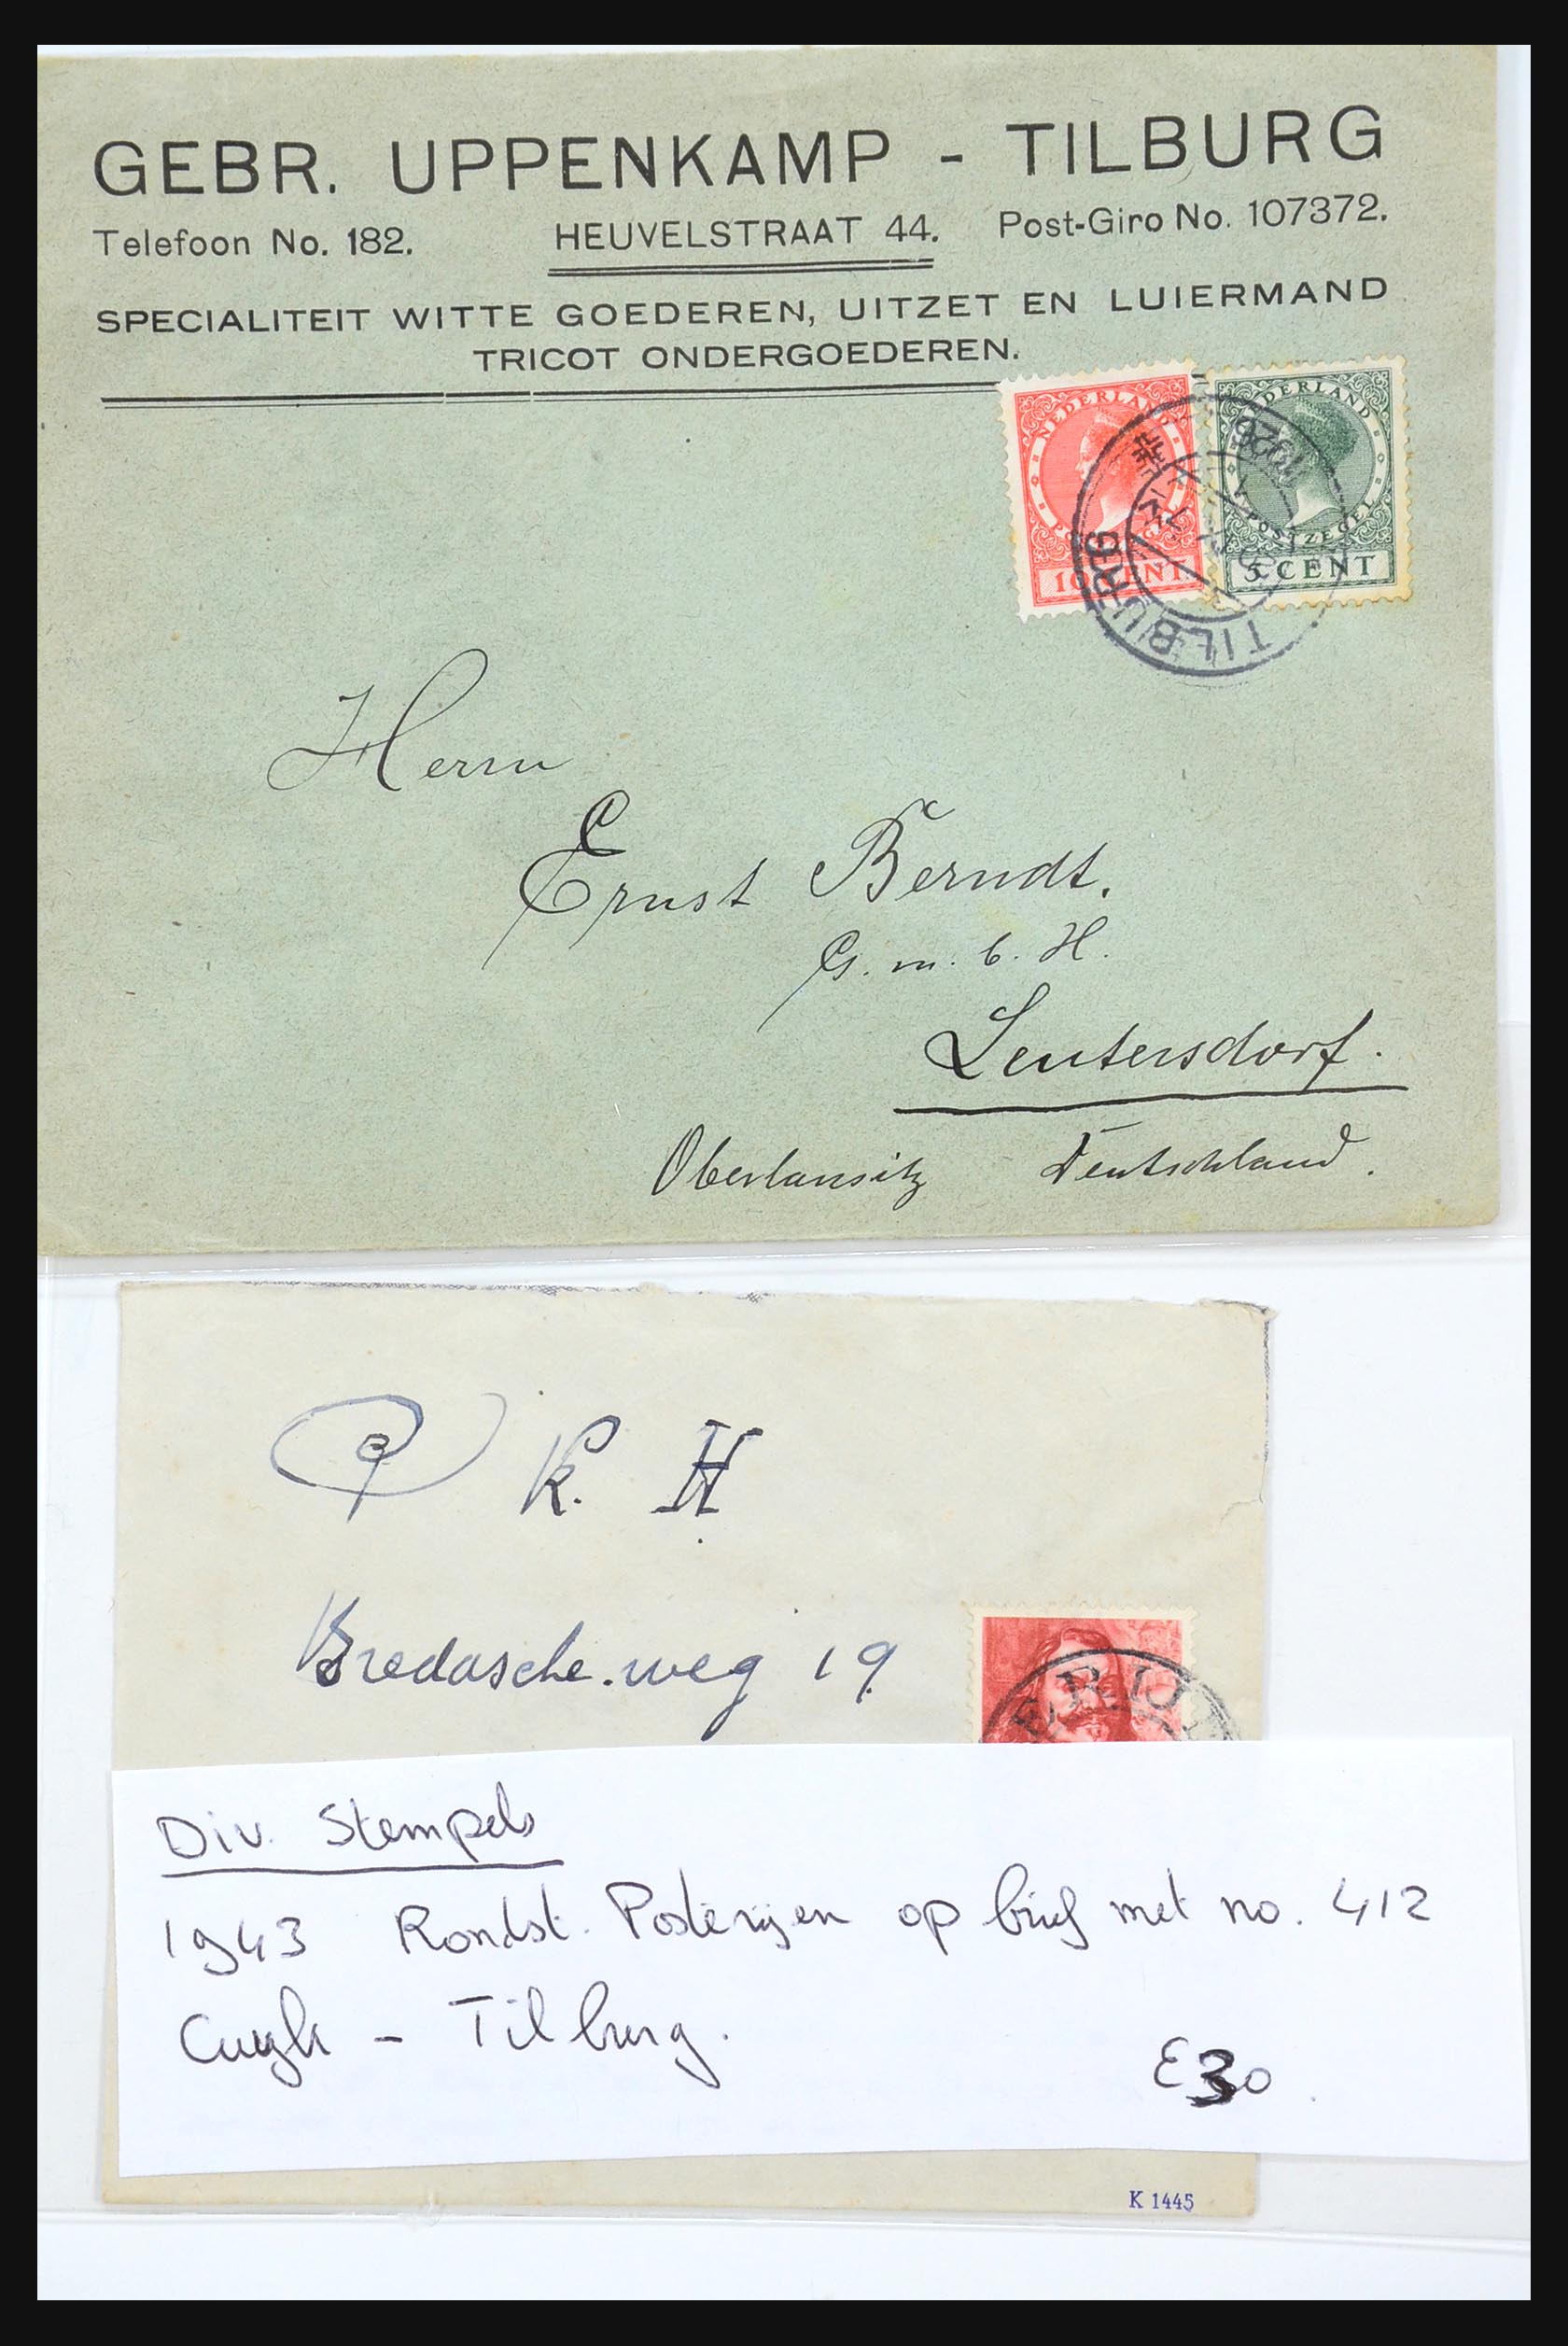 GEBR. UPPENKAMP - TILBURG
Telefoon No. 182. HEUVELSTRAAT 44. Post-Giro No. 107372.
SPECIALITEIT WITTE GOEDEREN, UITZET EN LUIERMAND
TRICOT ONDERGOEDEREN.
NEDERLAND
10 CENT
NEDERLAND
POSTZEGEL
5 CENT
TILBURG
Herrn
Ernst Berndt.
G. m. b. H.
Leutersdorf.
Oberlausitz Deutschland.
K. H
Bredascheweg 19
Div. Stempels
1943 Rondst. Posterijen op brief met no. 412
Cuyk - Tilburg.
€30.
K 1445